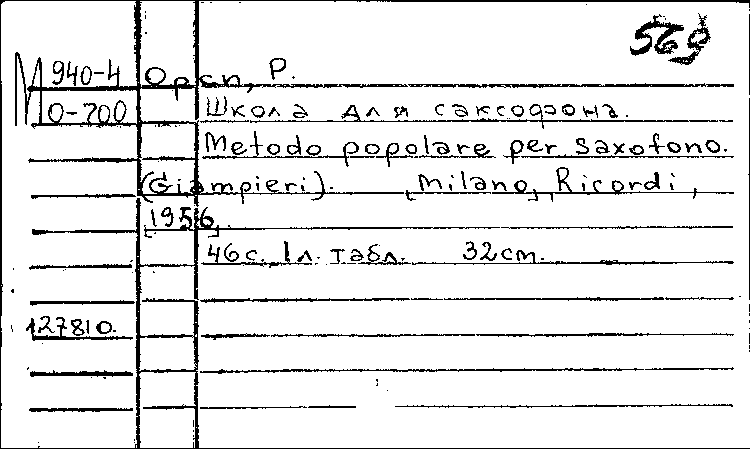 569
М 940-4 Орсп, Р.
О-700 Школа для саксофона.
Metodo popolare per saxofono.
(Giampieri). [Milano], Ricordi,
[1956].
46с. 1л. табл. 32cm.
127810.